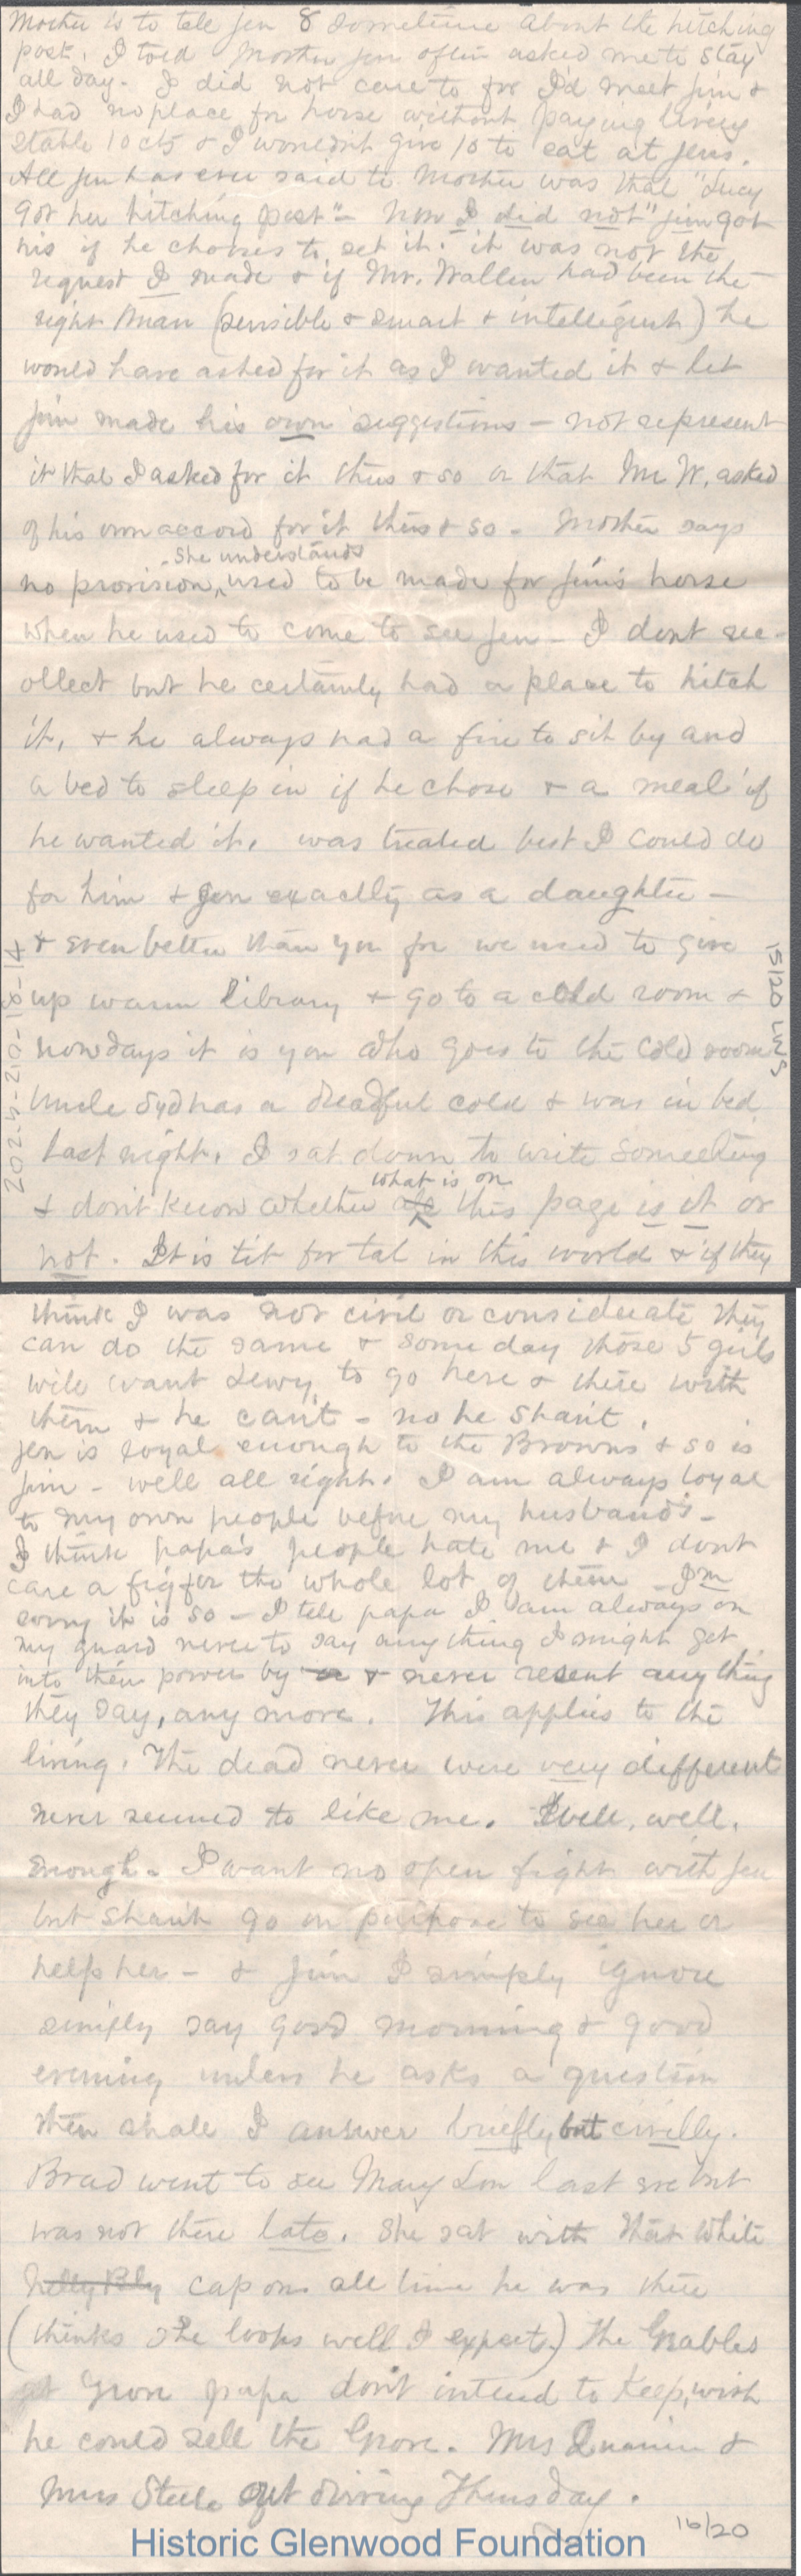 Mother is to tell Jen 8 sometime about the hitching
post. I told Mother Jen often asked me to stay
all day. I did not care to for I'd meet Jim &
I had no place for horse without paying livery
stable 10 cts & I wouldn't give 10 to eat at Jens.
All Jen has ever said to Mother was that "Lucy
got her hitching post" - now I did not "Jim got
his if he chooses to set it. it was not the
request I made & if Mr. Wallen had been the
right man (sensible & smart & intelligent) he
would have asked for it as I wanted it & let
Jim made his own suggestions - not represent
it that I asked for it thus & so or that Mr W. asked
of his own accord for it thus & so - Mother says
she understands
no provision, used to be made for Jim's horse
when he used to come to see Jen - I dont rec-
ollect but he certainly had a place to hitch
it, & he always had a fire to sit by and
a bed to sleep in if he chose & a meal if
he wanted it, was treated best I could do
for him & Jen exactly as a daughter -
& even better than you for we used to give
up warm library & go to a cold room &
nowdays it is you who goes to the cold room
Uncle Syd has a dreadful cold & was in bed
last night. I sat down to write something
what is on
& don't know whether this page is it or
not. It is tit for tat in this world & if they
15/20 LWS
think I was not civil or considerate they
can do the same & some day those 5 girls
will want Lewy to go here & there with
them & he can't - no he shan't.
Jen is loyal enough to the Browns & so is
Jim - well all right. I am always loyal
to my own people before my husband's -
I think papa's people hate me & I dont
care a fig for the whole lot of them I'm
sorry it is so - I tell papa I am always on
my guard never to say anything I might get
into their power by & never resent anything
they say, any more. This applies to the
living. The dead never were very different
never seemed to like me. Well, well.
Enough. I want no open fight with Jen
but shan't go on purpose to see her or
help her - & Jim I simply ignore
simply say good morning & good
evening unless he asks a question
then shall I answer briefly but civilly.
Brad went to see Mary Lou last eve but
was not there late. She sat with that white
Nelly Bly cap on all time he was there
(thinks she looks well I expect.) The Gables
Grove papa don't intend to keep, wish
he could sell the Grove. Mrs &
Mrs Steele out driving Thursday.
16/20
Historic Glenwood Foundation